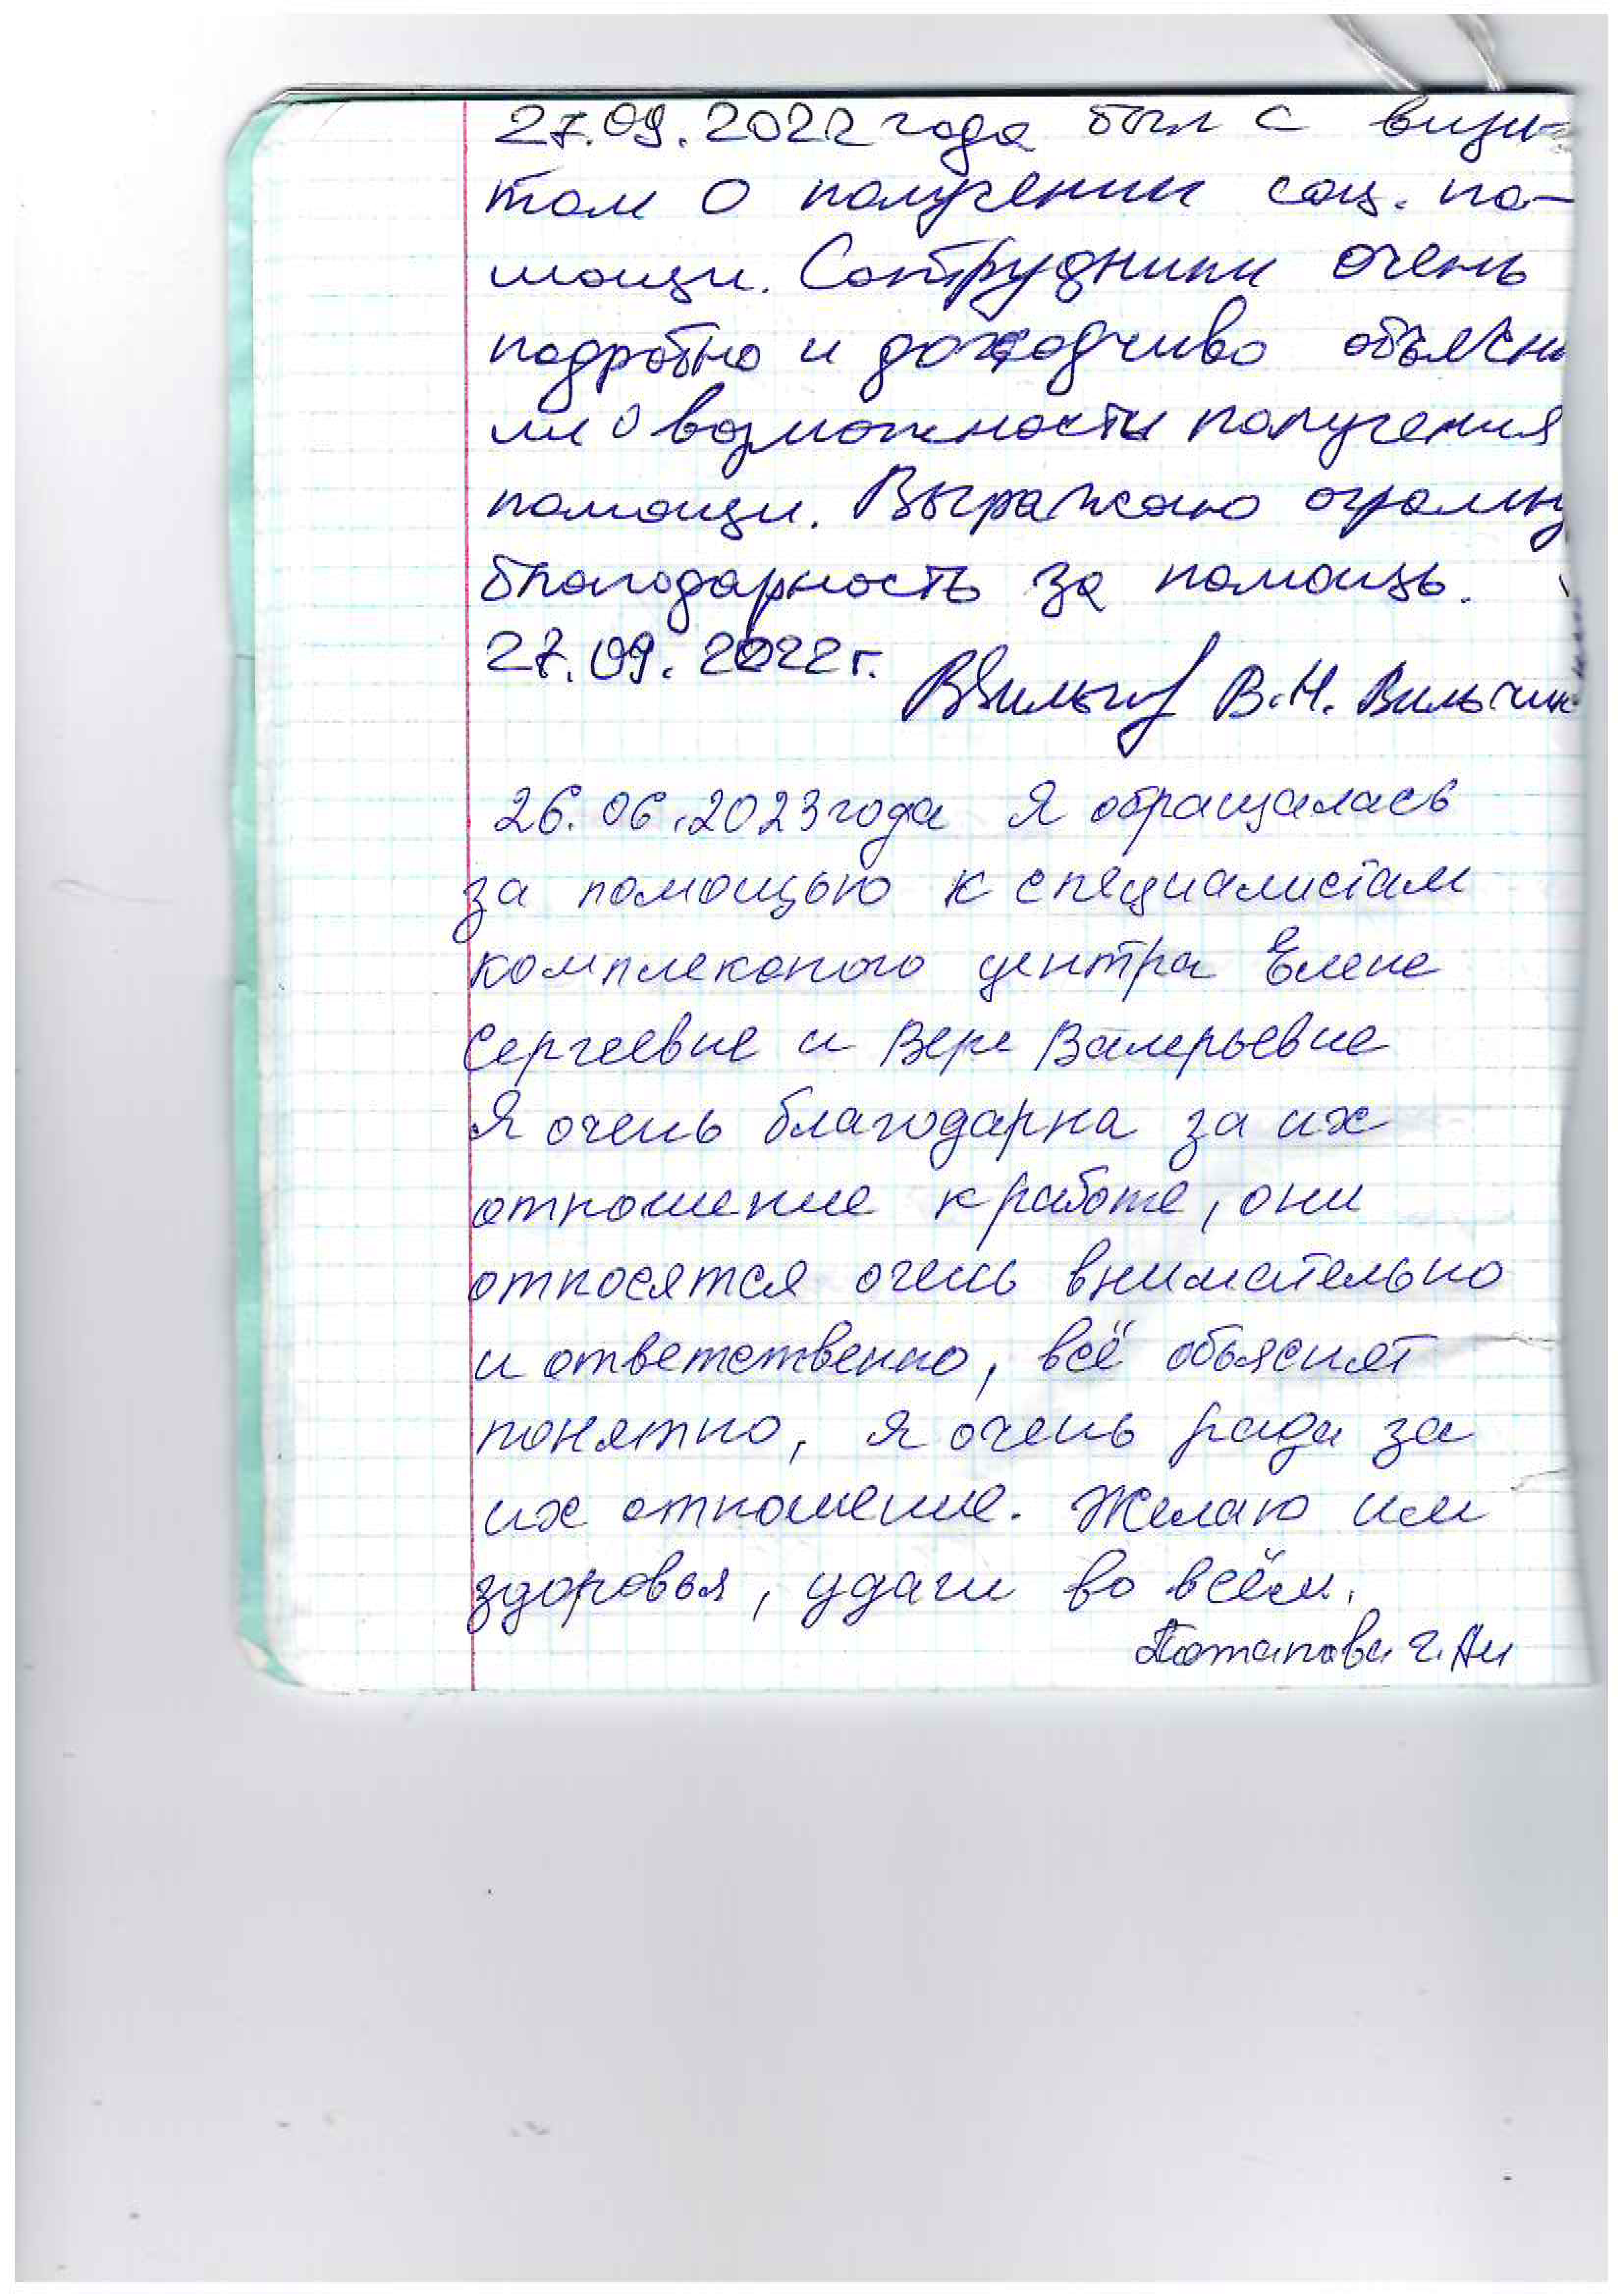 27.09.2022 года был с визи-
том о получении соц. по-
мощи. Сотрудники очень
подробно и доходчиво объясни
ли о возможности получения
помощи. Выражаю огромну
благодарность за помощь.
27.09.2022 г.
В.Н. Вильчик
26.06.2023 года Я обращалась
за помощью к специалистам
комплексного центра Елене
Сергеевне и Вере Валерьевне
Я очень благодарна за их
отношение к работе, они
относятся очень внимательно
и ответственно, всё объяснят
понятно, я очень рада за
их отношение. Желаю им
здоровья, удачи во всём.
Потапова